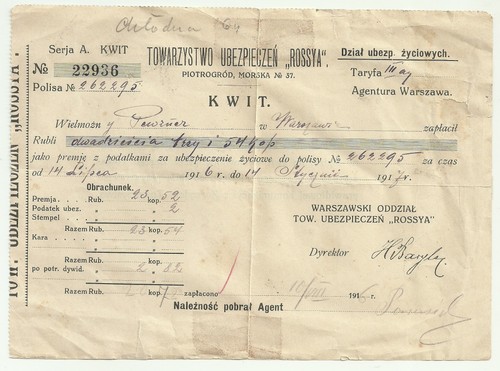 Chłodna 64
Serja A. KWIT
№ 22936
Polisa № 262295
TOWARZYSTWO UBEZPIECZEŃ „ROSSYA".
PIOTROGRÓD, MORSKA № 37.
Dział ubezp. życiowych.
Taryfa III
Agentura Warszawa.
KWIT.
Wielmożny w Warszawie zapłacił
Rubli dwadzieścia trzy i 54 kop
jako premję z podatkami za ubezpieczenie życiowe do polisy № 262295 za czas
od 14 Lipca 1916 r. do 14 Stycznia 1917 r.
Obrachunek.
Premja. Rub. 23 kop. 52
Podatek ubez. „ „ 2
Stempel „ „
Razem Rub. 23 kop. 54
Kara „ „
po potr. dywid. „ 2 „ 82
Razem Rub. kop. zapłacono
WARSZAWSKI ODDZIAŁ
TOW. UBEZPIECZEŃ „ROSSYA"
Dyrektor
10/VIII 1916 r.
Należność pobrał Agent
TOW. UBEZPIECZEŃ „ROSSYA".